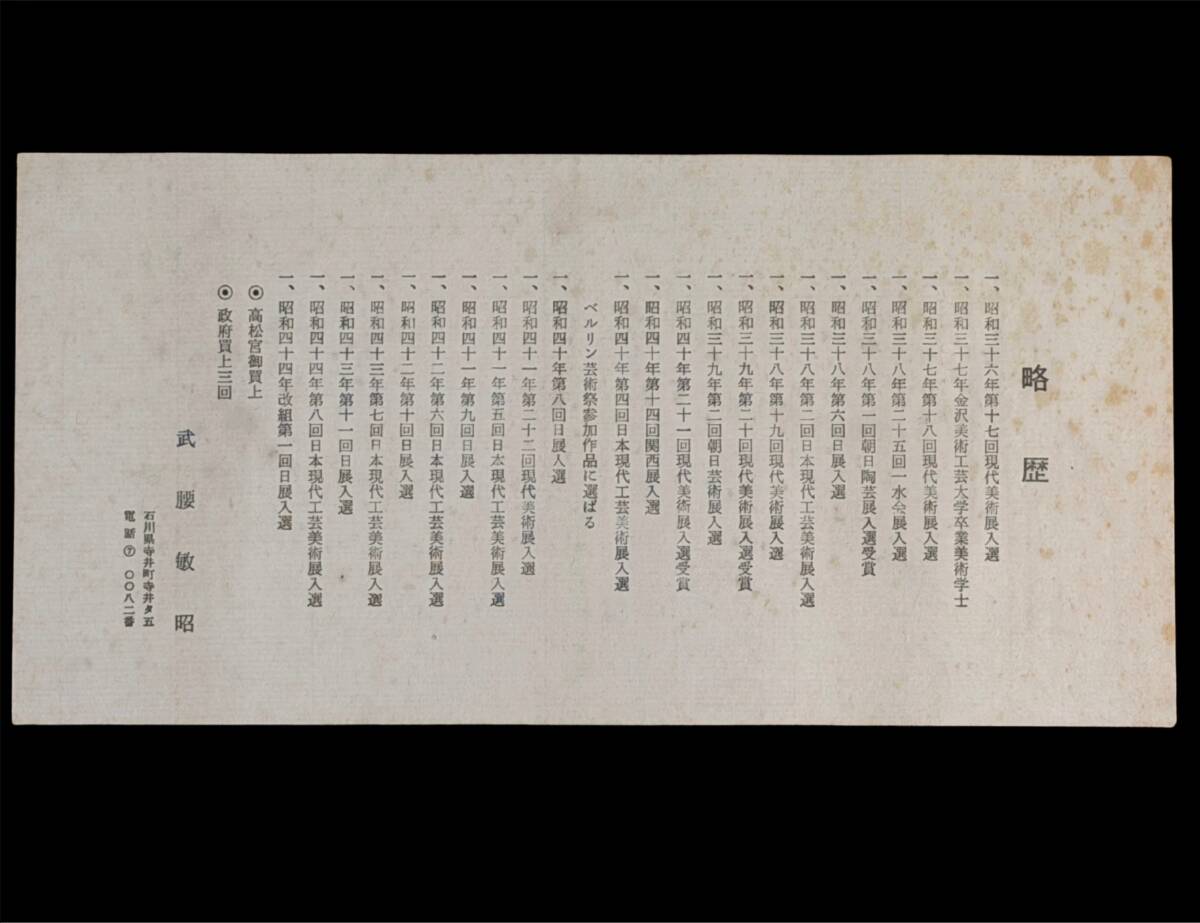 略歴
一、昭和三十六年第十七回現代美術展入選
一、昭和三十七年金沢美術工芸大学卒業美術学士
一、昭和三十七年第十八回現代美術展入選
一、昭和三十八年第二十五回一水会展入選
一、昭和三十八年第一回朝日陶芸展入選受賞
一、昭和三十八年第六回日展入選
一、昭和三十八年第二回日本現代工芸美術展入選
一、昭和三十八年第十九回現代美術展入選
一、昭和三十九年第二十回現代美術展入選受賞
一、昭和三十九年第二回朝日芸術展入選
一、昭和四十年第二十一回現代美術展入選受賞
一、昭和四十年第十四回関西展入選
一、昭和四十年第四回日本現代工芸美術展入選
ベルリン芸術祭参加作品に選ばる
一、昭和四十年第八回日展入選
一、昭和四十一年第二十二回現代美術展入選
一、昭和四十一年第五回日本現代工芸美術展入選
一、昭和四十一年第九回日展入選
一、昭和四十二年第六回日本現代工芸美術展入選
一、昭和四十二年第十回日展入選
一、昭和四十三年第七回日本現代工芸美術展入選
一、昭和四十三年第十一回日展入選
一、昭和四十四年第八回日本現代工芸美術展入選
一、昭和四十四年改組第一回日展入選
◉高松宮御買上
◉政府買上三回
武腰敏昭
石川県寺井町寺井タ五
電話㋐〇〇八二番